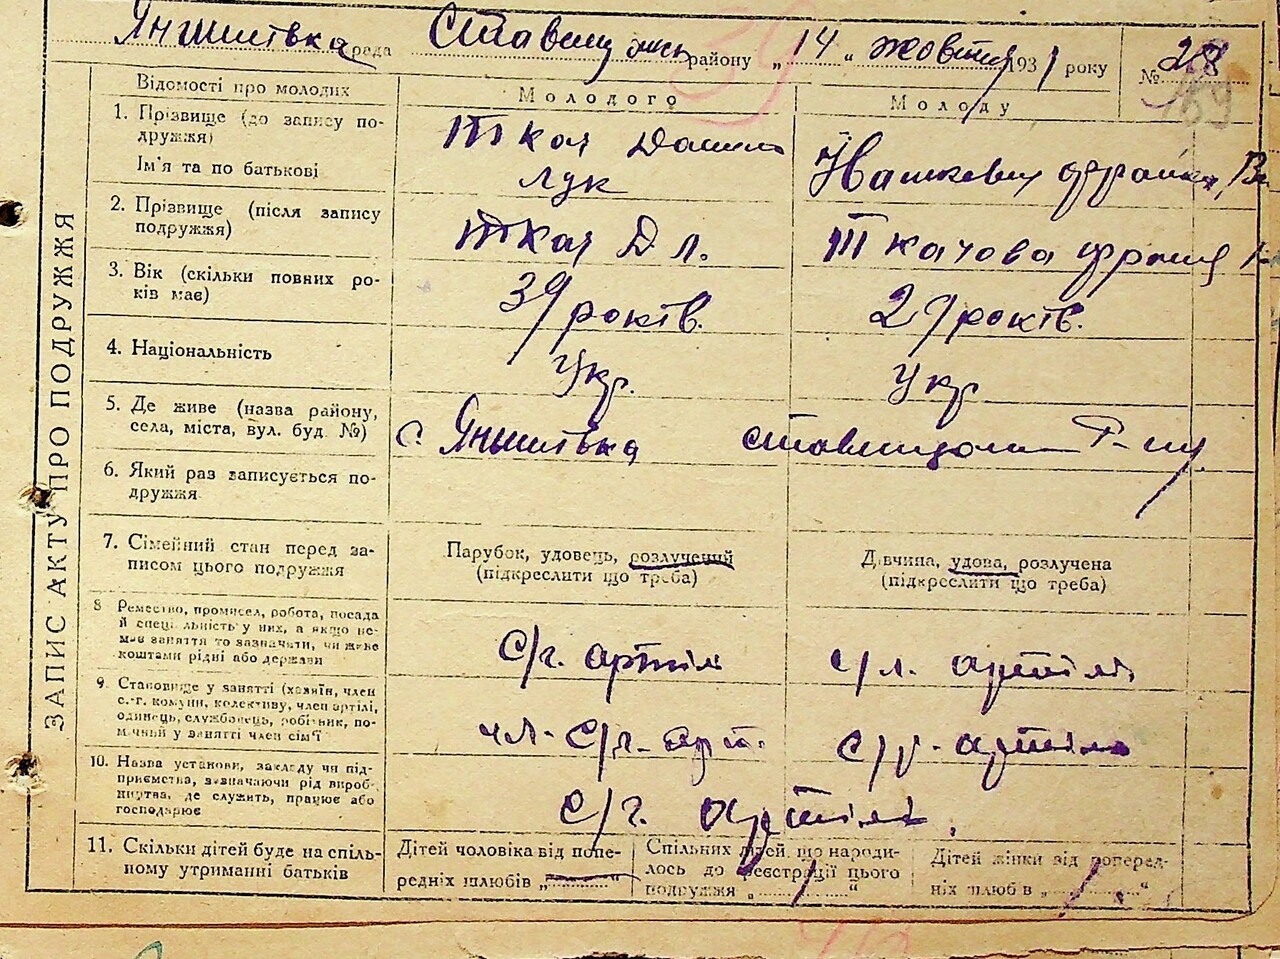 Яншивка рада Ставищанськ району „14“ жовтня 1931 року № 28
159
ЗАПИС АКТУ ПРО ПОДРУЖЖЯ
Відомості про молодих
Молодого
Молоду
1. Прізвище (до запису по-
дружжя)
Ім'я та по батькові
Ткач Данило
Лук
Ивашкевич
2. Прізвище (після запису
подружжя)
Ткач Д Л.
Ткачова
3. Вік (скільки повних ро-
ків має)
39 років.
29 років.
4. Національність
Укр.
Укр
5. Де живе (назва району,
села, міста, вул. буд. №)
с. Яншивка
6. Який раз записується по-
дружжя
7. Сімейний стан перед за-
писом цього подружжя
Парубок, удовець, розлучений
(підкреслити що треба)
Дівчина, удова, розлучена
(підкреслити що треба)
8 Ремество, промисел, робота, посада
й спеціальність у них, а якщо не-
має заняття то зазначати, чи живе
коштами рідні або держави
с/г. артіл
с/г. артіль
9. Становище у занятті (хазяїн, член
с.-г. комуни, колективу, член артілі,
одинець, службовець, робітник, по-
мічний у занятті член сім'ї
чл. с/г. арт.
с/г. артіль
10. Назва установи, закладу чи під-
приємства, зазначаючи рід вироб-
ництва, де служить, працює або
господарює
с/г. артіль.
11. Скільки дітей буде на спіль-
ному утриманні батьків
Дітей чоловіка від попе-
редніх шлюбів „ “
Спільних дітей, що народи-
лось до реєстрації цього
подружжя „ “
Дітей жінки від поперед-
ніх шлюбів „ “